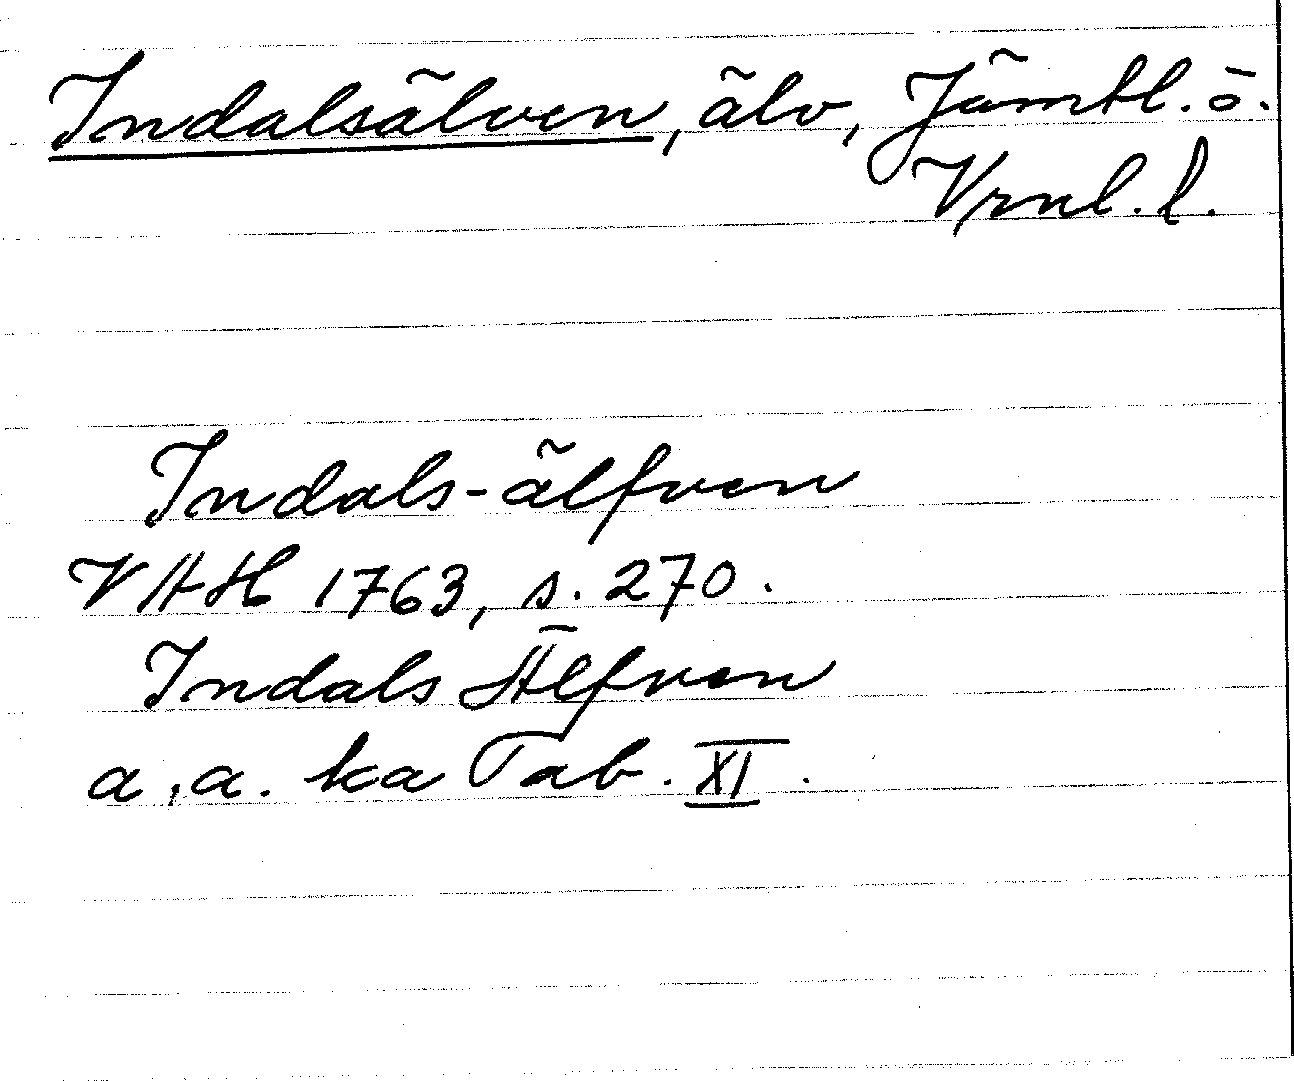 Indalsälven, älv, Jämtl. o.
Vrnl. l.
Indals-älfven
VAH 1763, s. 270.
Indals Älfven
a.a. ka Tab. XI.